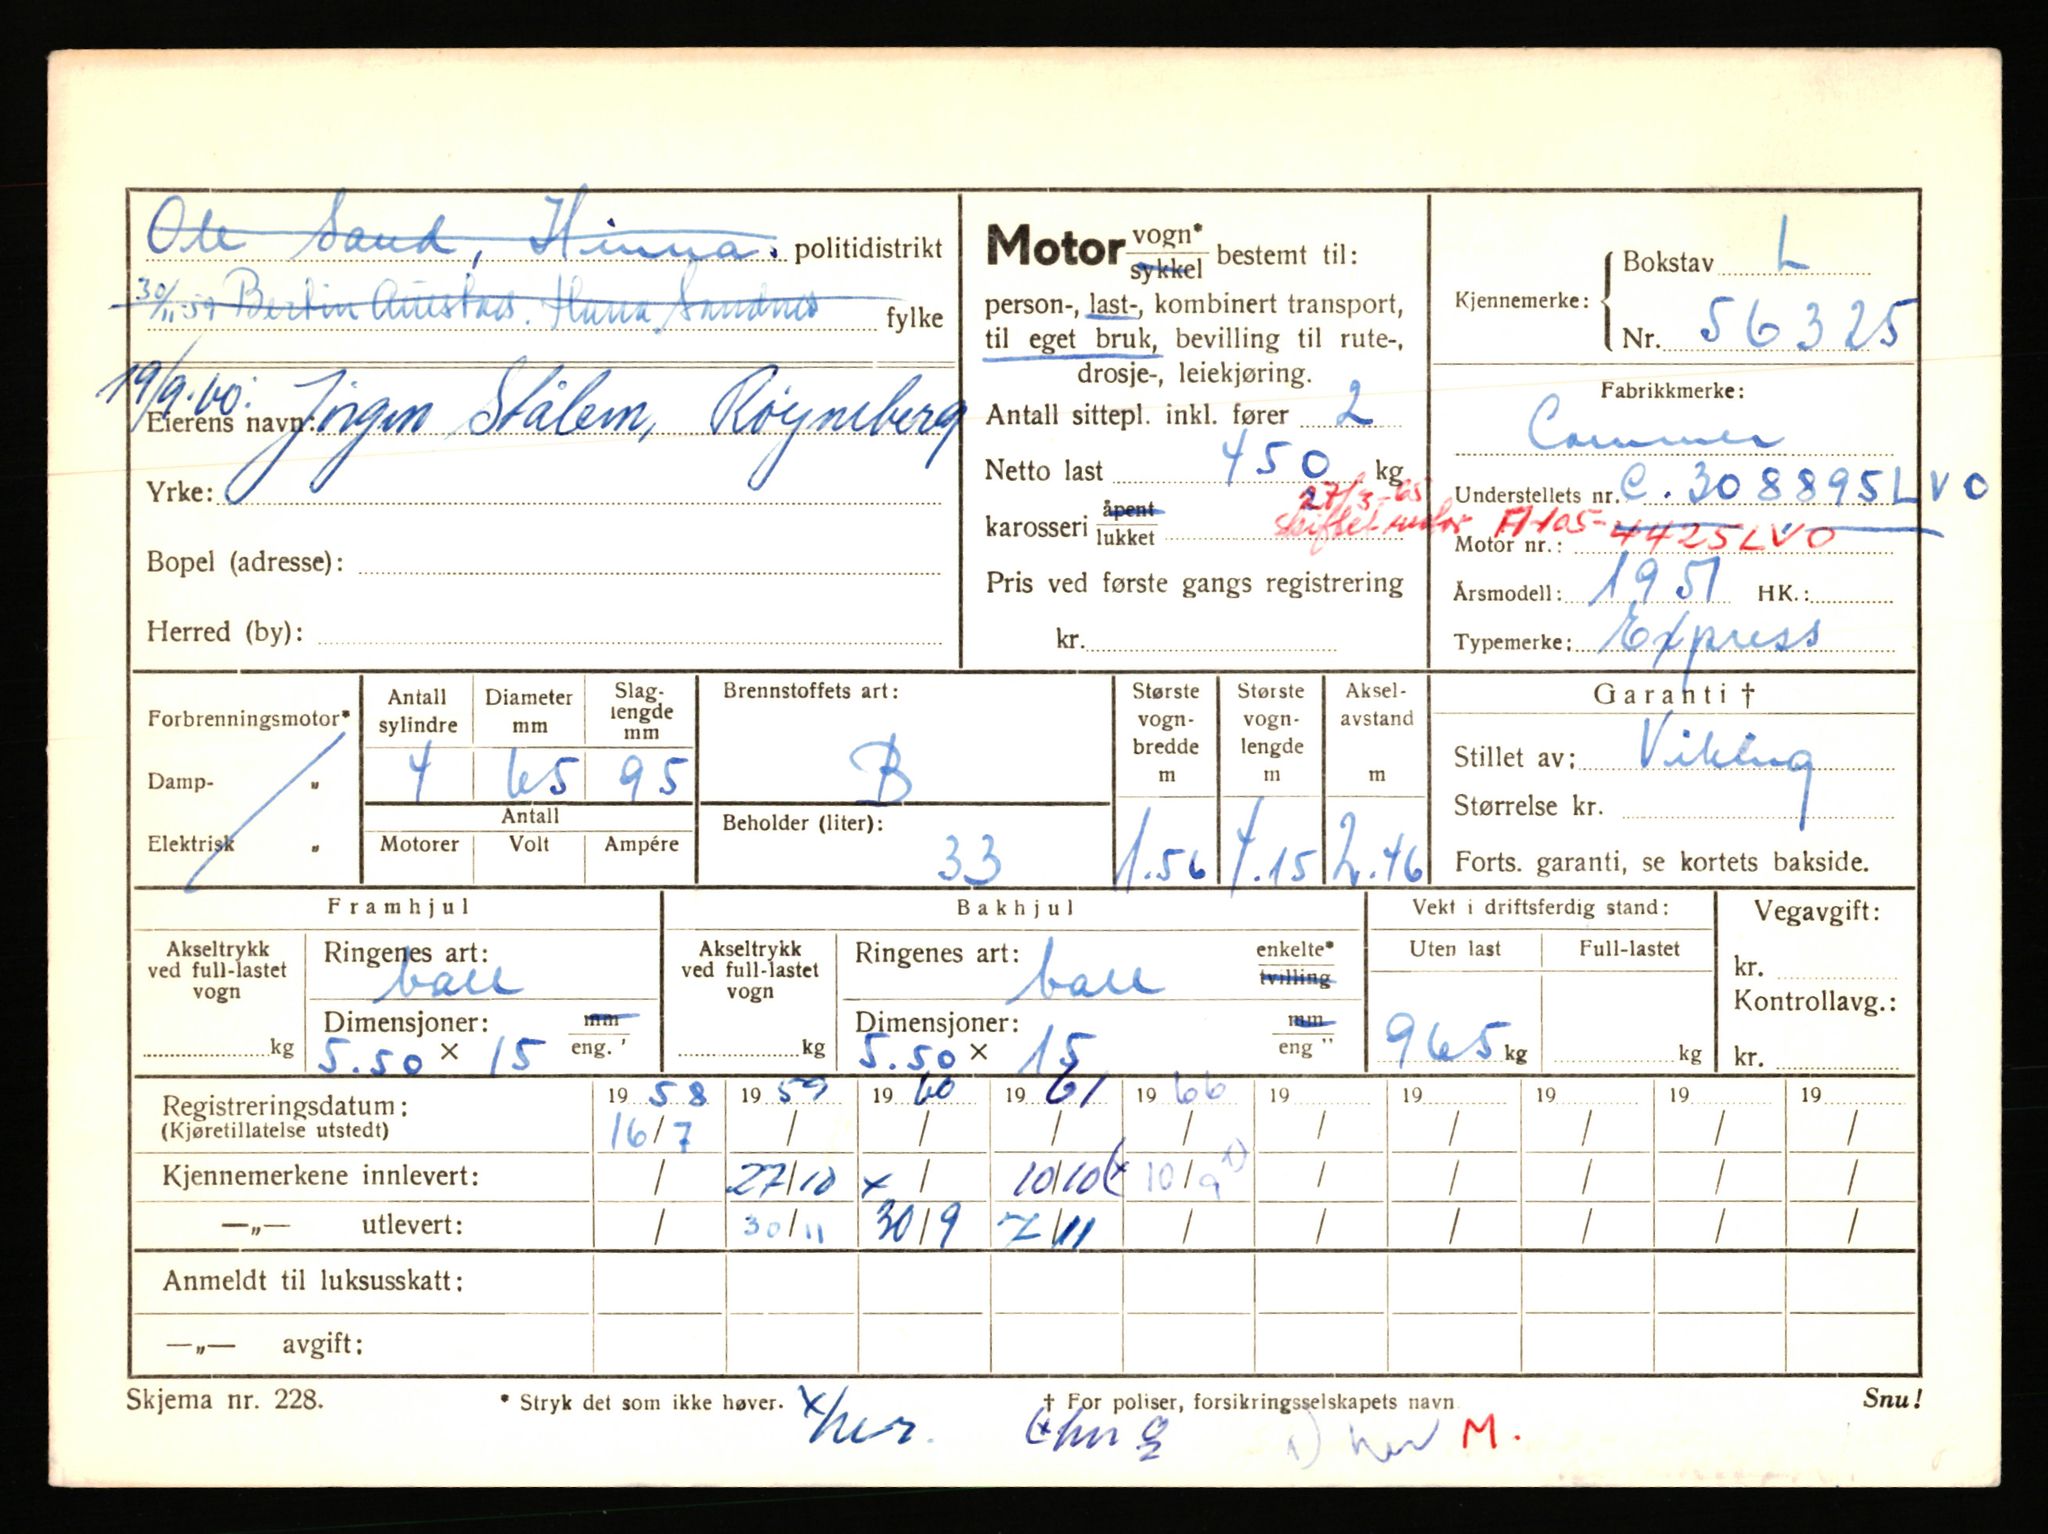 Ole Sand, Hinna. politidistrikt
30/11-59 Bertin Austås. Hana Sandnes fylke
19/9.60. Eierens navn: Jørgen Stålem, Røyneberg
Yrke:
Bopel (adresse):
Herred (by):
Motor vogn* / sykkel bestemt til:
person-, last-, kombinert transport,
til eget bruk, bevilling til rute-,
drosje-, leiekjøring.
Antall sittepl. inkl. fører 2
Netto last 450 kg
27/3-65
karosseri åpent / lukket skiftet motor
Pris ved første gangs registrering
kr.
Kjennemerke: Bokstav L
Nr. 56325
Fabrikkmerke:
Commer
Understellets nr. C.308895LVO
Motor nr.: A105-4425LVO
Årsmodell: 1951 HK.:
Typemerke: Express
Forbrenningsmotor*
Damp- „
Elektrisk „
Antall sylindre Diameter mm Slag-lengde mm
4 65 95
Antall
Motorer Volt Ampére
Brennstoffets art:
B
Beholder (liter):
33
Største vogn-bredde m Største vogn-lengde m Aksel-avstand m
1.56 4.15 2.46
Garanti †
Stillet av: Viking
Størrelse kr.
Forts. garanti, se kortets bakside.
Framhjul
Akseltrykk ved full-lastet vogn
kg
Ringenes art:
ball
Dimensjoner: mm / eng. '
5.50 × 15
Bakhjul
Akseltrykk ved full-lastet vogn
kg
Ringenes art: enkelte* / tvilling
ball
Dimensjoner: mm / eng "
5.50 × 15
Vekt i driftsferdig stand:
Uten last Full-lastet
965 kg kg
Vegavgift:
kr.
Kontrollavg.:
kr.
Registreringsdatum: 19 58 19 59 19 60 19 61 19 66 19 19 19 19 19
(Kjøretillatelse utstedt) 16/7 / / / / / / / / /
Kjennemerkene innlevert: / 27/10 x / 10/10 (x 10/9 1) / / / / /
—„— utlevert: / 30/11 30/9 7/11 / / / / / /
Anmeldt til luksusskatt:
—„— avgift:
Skjema nr. 228. * Stryk det som ikke høver. † For poliser, forsikringsselskapets navn Snu!
x/her. 1) her M.